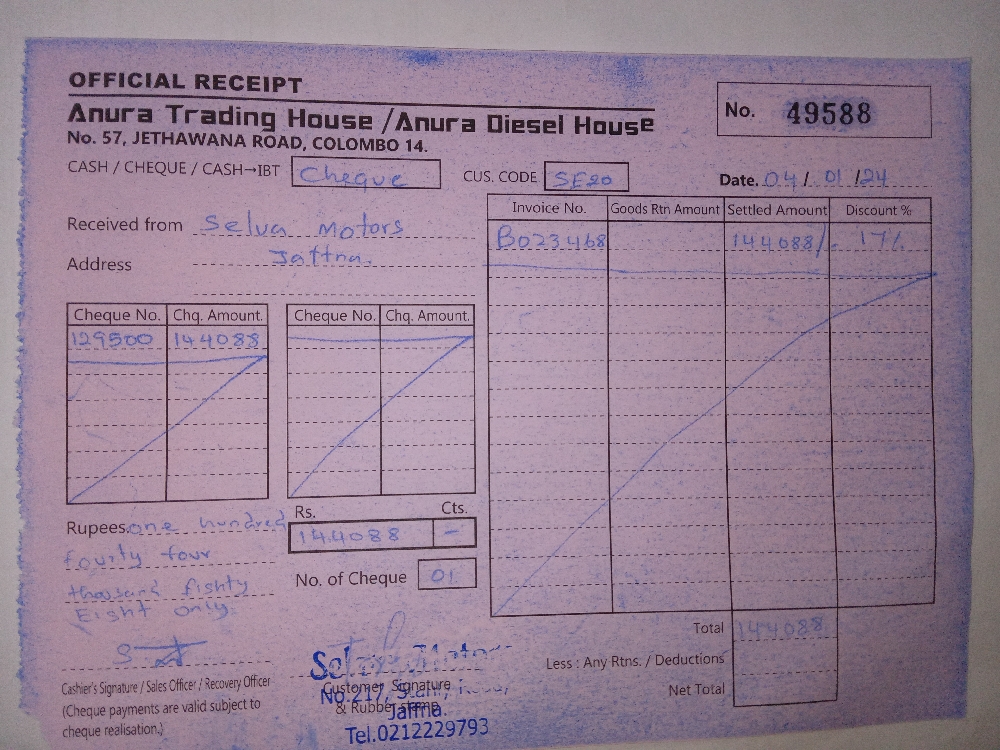 OFFICIAL RECEIPT
Anura Trading House /Anura Diesel House
No. 57, JETHAWANA ROAD, COLOMBO 14.
No. 49588
CASH / CHEQUE / CASH→IBT Cheque
CUS. CODE SE20
Date. 04 / 01 / 24
Received from Selva Motors
Address Jaffna.
Invoice No. Goods Rtn Amount Settled Amount Discount %
B023468 144088/- 17%
Cheque No. Chq. Amount. Cheque No. Chq. Amount.
129500 144088
Rupees. one hundred
fourty four
thousand fishty
Eight only.
Rs. Cts.
144088 –
No. of Cheque 01
Total 144088
Less : Any Rtns. / Deductions
Net Total
Cashier's Signature / Sales Officer / Recovery Officer
(Cheque payments are valid subject to
cheque realisation.)
Customer Signature
& Rubber stamp
No. 217,
Jaffna.
Tel.0212229793